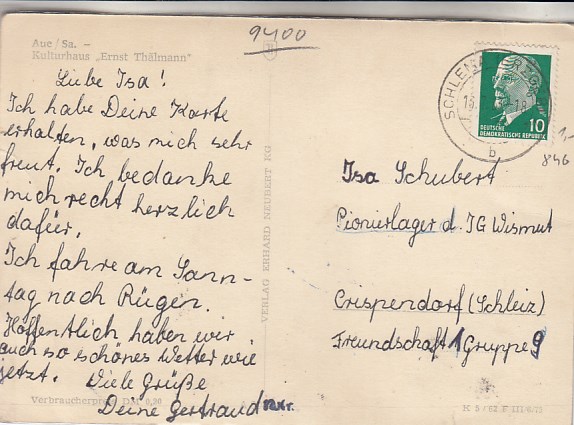 9400
Aue/Sa. –
Kulturhaus „Ernst Thälmann"
Liebe Isa!
Ich habe Deine Karte
erhalten, was mich sehr
freut. Ich bedanke
mich recht herzlich
dafür.
Ich fahre am Sonn-
tag nach Rügen.
Hoffentlich haben wir
auch so schönes Wetter wie
jetzt. Viele Grüße
Deine Gertraud
Verbraucherpreis DM 0,20
VERLAG ERHARD NEUBERT KG
DEUTSCHE
DEMOKRATISCHE REPUBLIK
10
b
1,-
846
Isa Schubert
Pionierlager d. IG Wismut
Crispendorf (Schleiz)
Freundschaft 1 Gruppe 9